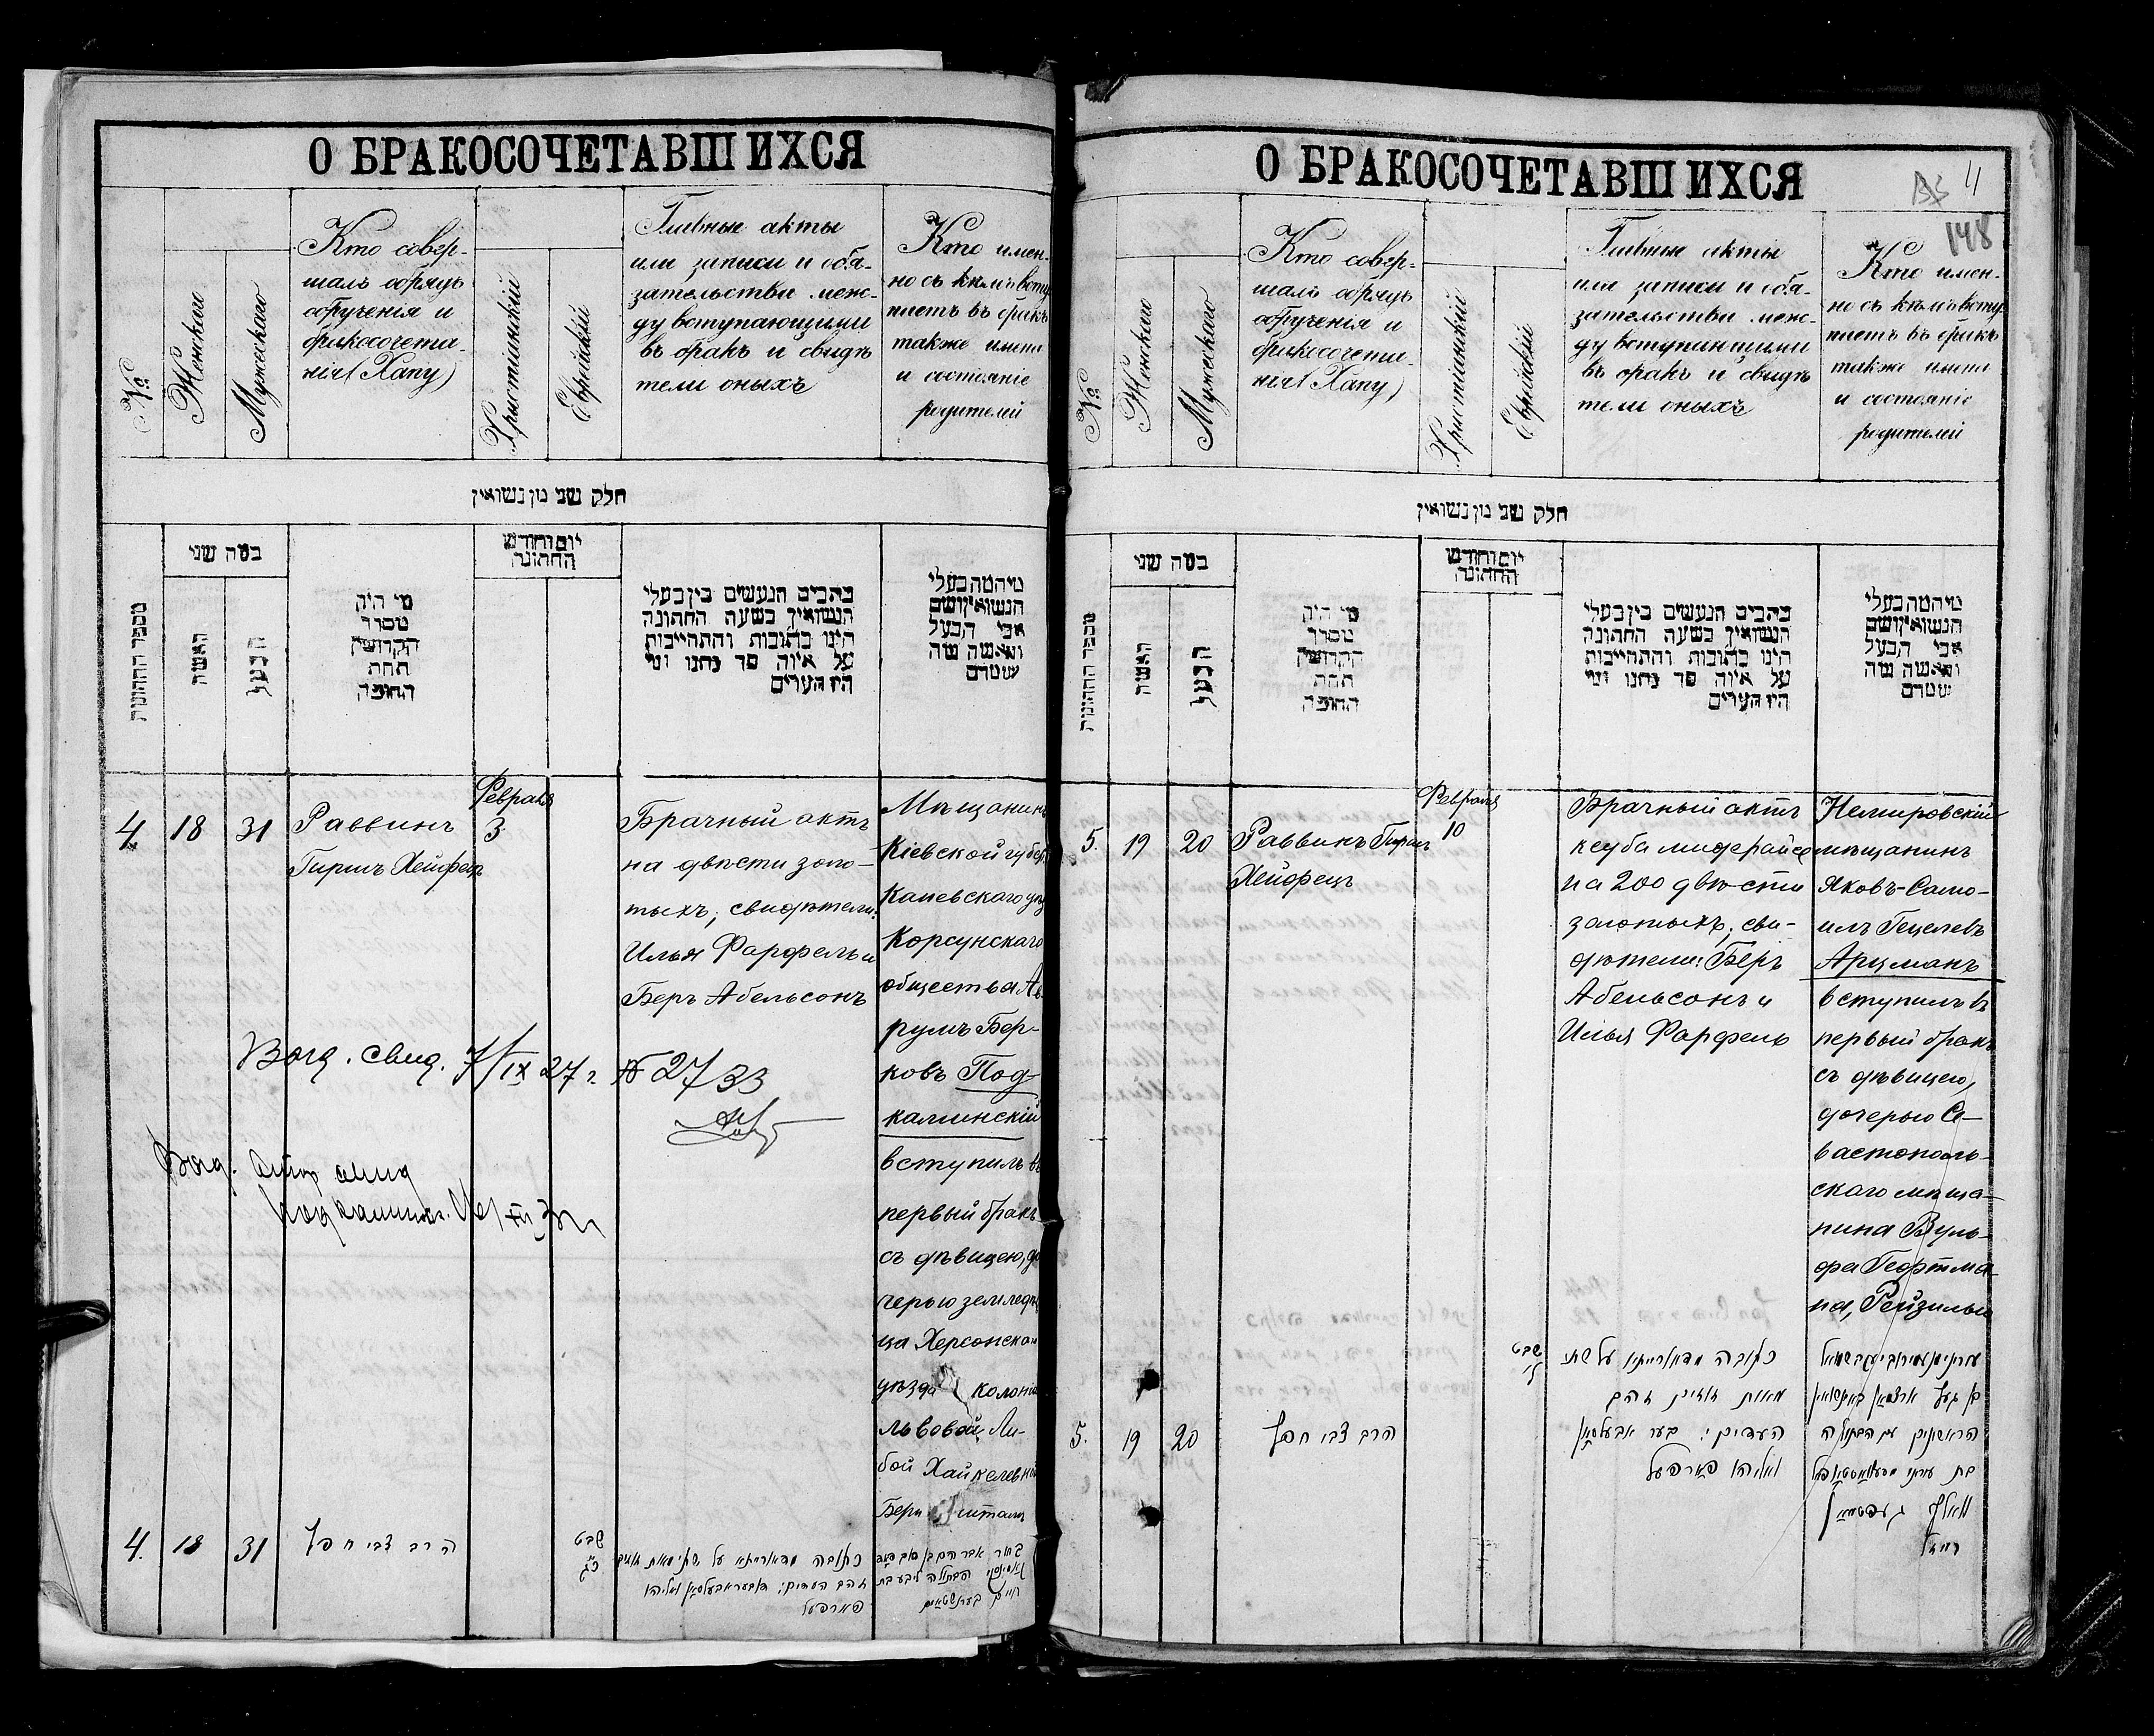 О БРАКОСОЧЕТАВШИХСЯ
№
Женского
Мужескаго
Кто совер-
шалъ обрядъ
обрученія и
бракосочета-
нія (Хапу)
Христіанскій
Еврейскій
Главные акты
или записи и обя-
зательства меж-
ду вступающими
въ бракъ и свидѣ
тели оныхъ
Кто имен-
но съ кѣмъ всту
паетъ въ бракъ
также имена
и состояніе
родителей
חלק שני מן נשואין
מספר החתונות
כמה שני
האשה
הבעל
מי היה
מסדר
הקדושין
תחת
החופה
יום וחודש
החתונה
כתבים הנעשים בין בעלי
הנשואין בשעה החתונה
הינו כתובות והתחייבות
על איזה סך נתנו ומי
היו העדים
מיהמה בעלי
הנשואין ושם
אבי הבעל
והאשה
4
18
31
Раввинъ
Гиршъ Хейфецъ
Февраля
3
Брачный актъ
на двѣсти золо-
тыхъ; свидѣтели:
Илья Фарфель и
Беръ Абельсонъ
Мѣщанинъ
Кіевской губер.
Каневскаго уѣз
Корсунскаго
общества Ав-
румъ Бер-
ковъ Под-
каминскій
вступилъ въ
первый бракъ
съ дѣвицею, до
черью земледѣль
ца Херсонскаго
уѣзда колоніи
Львовой Ли-
бой Хайкелевной
Берн штамъ
Выд. свид. 7/IX 27 г. № 2733
4.
18
31
הרב צבי חפץ
שבט
כתובה מדאורייתא על שתי מאות
זהב העדים: בער אבעלסאן ואליהו
פארפעל
О БРАКОСОЧЕТАВШИХСЯ
4
148
№
Женского
Мужескаго
Кто совер-
шалъ обрядъ
обрученія и
бракосочета-
нія (Хапу)
Христіанскій
Еврейскій
Главные акты
или записи и обя-
зательства меж-
ду вступающими
въ бракъ и свидѣ
тели оныхъ
Кто имен-
но съ кѣмъ всту
паетъ въ бракъ
также имена
и состояніе
родителей
חלק שני מן נשואין
מספר החתונות
כמה שני
האשה
הבעל
מי היה
מסדר
הקדושין
תחת
החופה
יום וחודש
החתונה
כתבים הנעשים בין בעלי
הנשואין בשעה החתונה
הינו כתובות והתחייבות
על איזה סך נתנו ומי
היו העדים
מיהמה בעלי
הנשואין ושם
אבי הבעל
והאשה
5.
19
20
Раввинъ Гиршъ
Хейфецъ
Февраля
10
Брачный актъ
ксуба мидерайсе
на 200 двѣсти
золотыхъ; сви-
дѣтели: Беръ
Абельсонъ и
Илья Фарфель
Немировскій
мѣщанинъ
Яковъ-Само-
илъ Гецелевъ
Арцманъ
вступилъ въ
первый бракъ
съ дѣвицею,
дочерью Се-
вастополь-
скаго мѣща-
нина Вуль-
фа Гефтма-
на, Рейзилью
5.
19
20
הרב צבי חפץ
שבט
כתובה מדאורייתא על שתי
מאות זהב
העדים: בער אבעלסאן
ואליהו פארפעל
הראשונים עם הבתולה
וואלף געפטמאן
רייזל